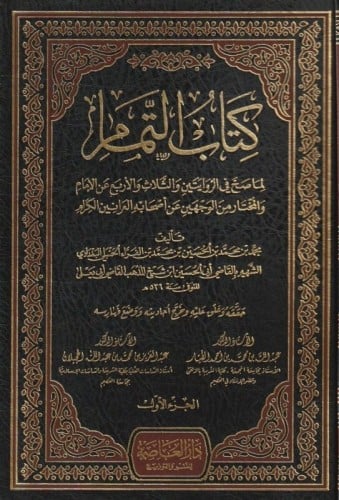 كتاب التمام
لما صح في الروايتين والثلاث والأربع عن الإمام
والمختار من الوجهين عن أصحابه العرانين الكرام
تأليف
محمد بن محمد بن الحسين بن محمد بن الفراء الحنبلي البغدادي
الشهير بالقاضي أبي الحسين ابن شيخ المذهب القاضي أبي يعلى
المتوفى سنة ٥٢٦ هـ
حققه وعلق عليه وخرج أحاديثه ووضع فهارسه
الأستاذ الدكتور
عبد الله بن محمد بن أحمد الطيار
الأستاذ الدكتور
عبد العزيز بن محمد بن عبد الله
الجزء الأول
دار العاصمة
للنشر والتوزيع